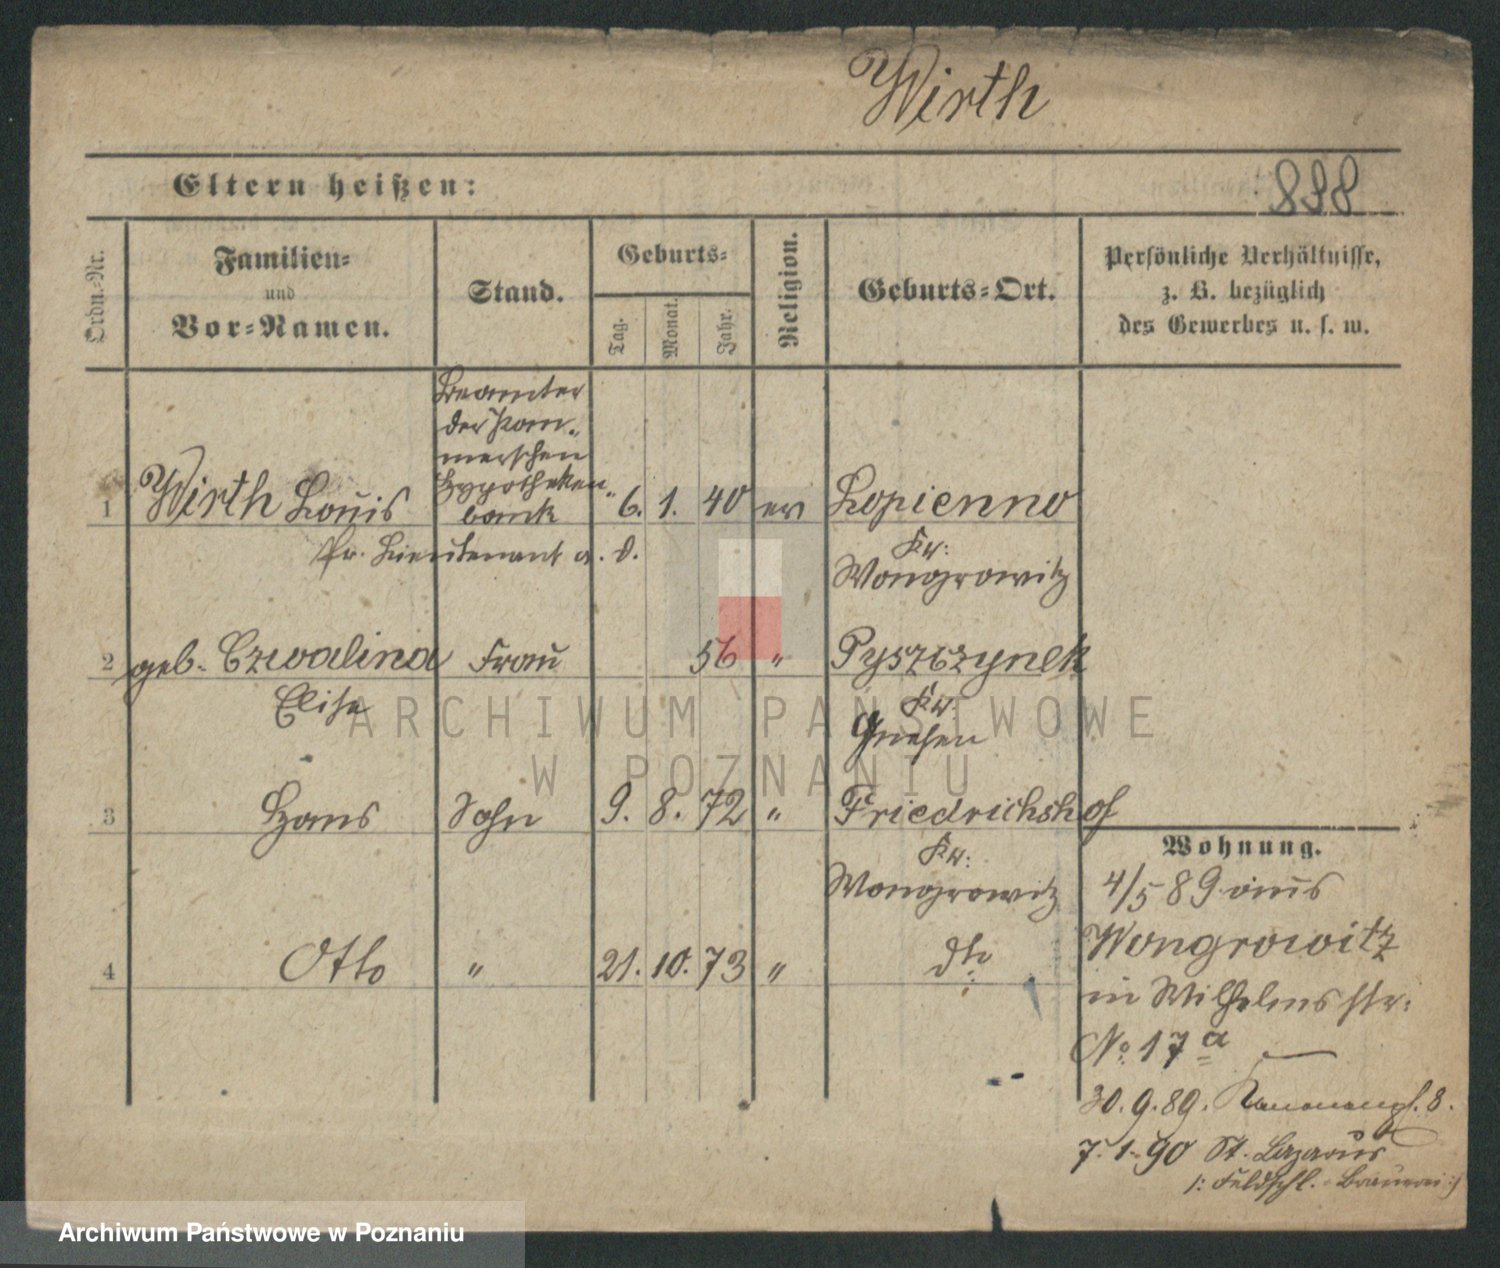 Wirth
Eltern heißen:
898
Ordn.-Nr.
Familien-
und
Vor-Namen.
Stand.
Geburts-
Tag.
Monat.
Jahr.
Religion.
Geburts-Ort.
Persönliche Verhältnisse,
z. B. bezüglich
des Gewerbes u. s. w.
Beamter
der Pom-
merschen
Hypotheken-
bank
1 Wirth Louis 6. 1. 40 ev Lopienno
Pr. Lieutenant a. D.
Kr:
Wongrowitz
2 geb. Czwalina Frau 56 " Pyszczynek
Elise
Kr:
Gnesen
3 Hans Sohn 9. 8. 72 " Friedrichshof
Kr:
Wongrowitz
4 Otto " 21. 10. 73 " dto
Wohnung.
4/5 89 aus
Wongrowitz
in Wilhelmsstr:
No. 17a
30. 9. 89. Kanonenpl. 8.
7. 1. 90 St. Lazarus
/: Feldschl.-Brauerei :/
ARCHIWUM PAŃSTWOWE
W POZNANIU
Archiwum Państwowe w Poznaniu